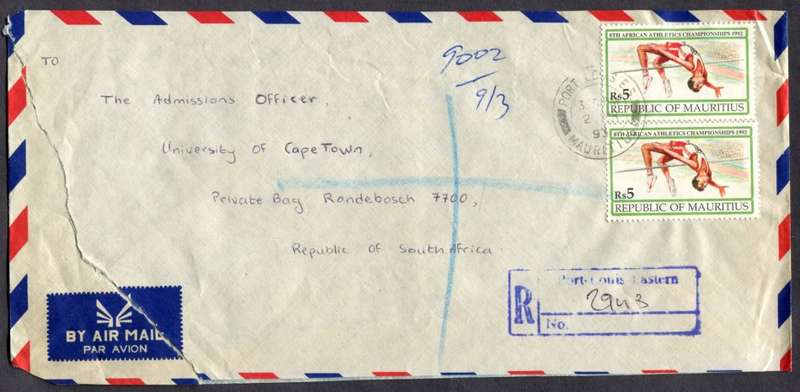 TO
The Admissions Officer,
University of Cape Town,
Private Bag Rondebosch 7700,
Republic of South Africa.
9002
9/3
8TH AFRICAN ATHLETICS CHAMPIONSHIPS 1992
Rs5
REPUBLIC OF MAURITIUS
8TH AFRICAN ATHLETICS CHAMPIONSHIPS 1992
Rs5
REPUBLIC OF MAURITIUS
PORT LOUIS
2
93
MAURITIUS
R
Port-Louis Eastern
No.
BY AIR MAIL
PAR AVION